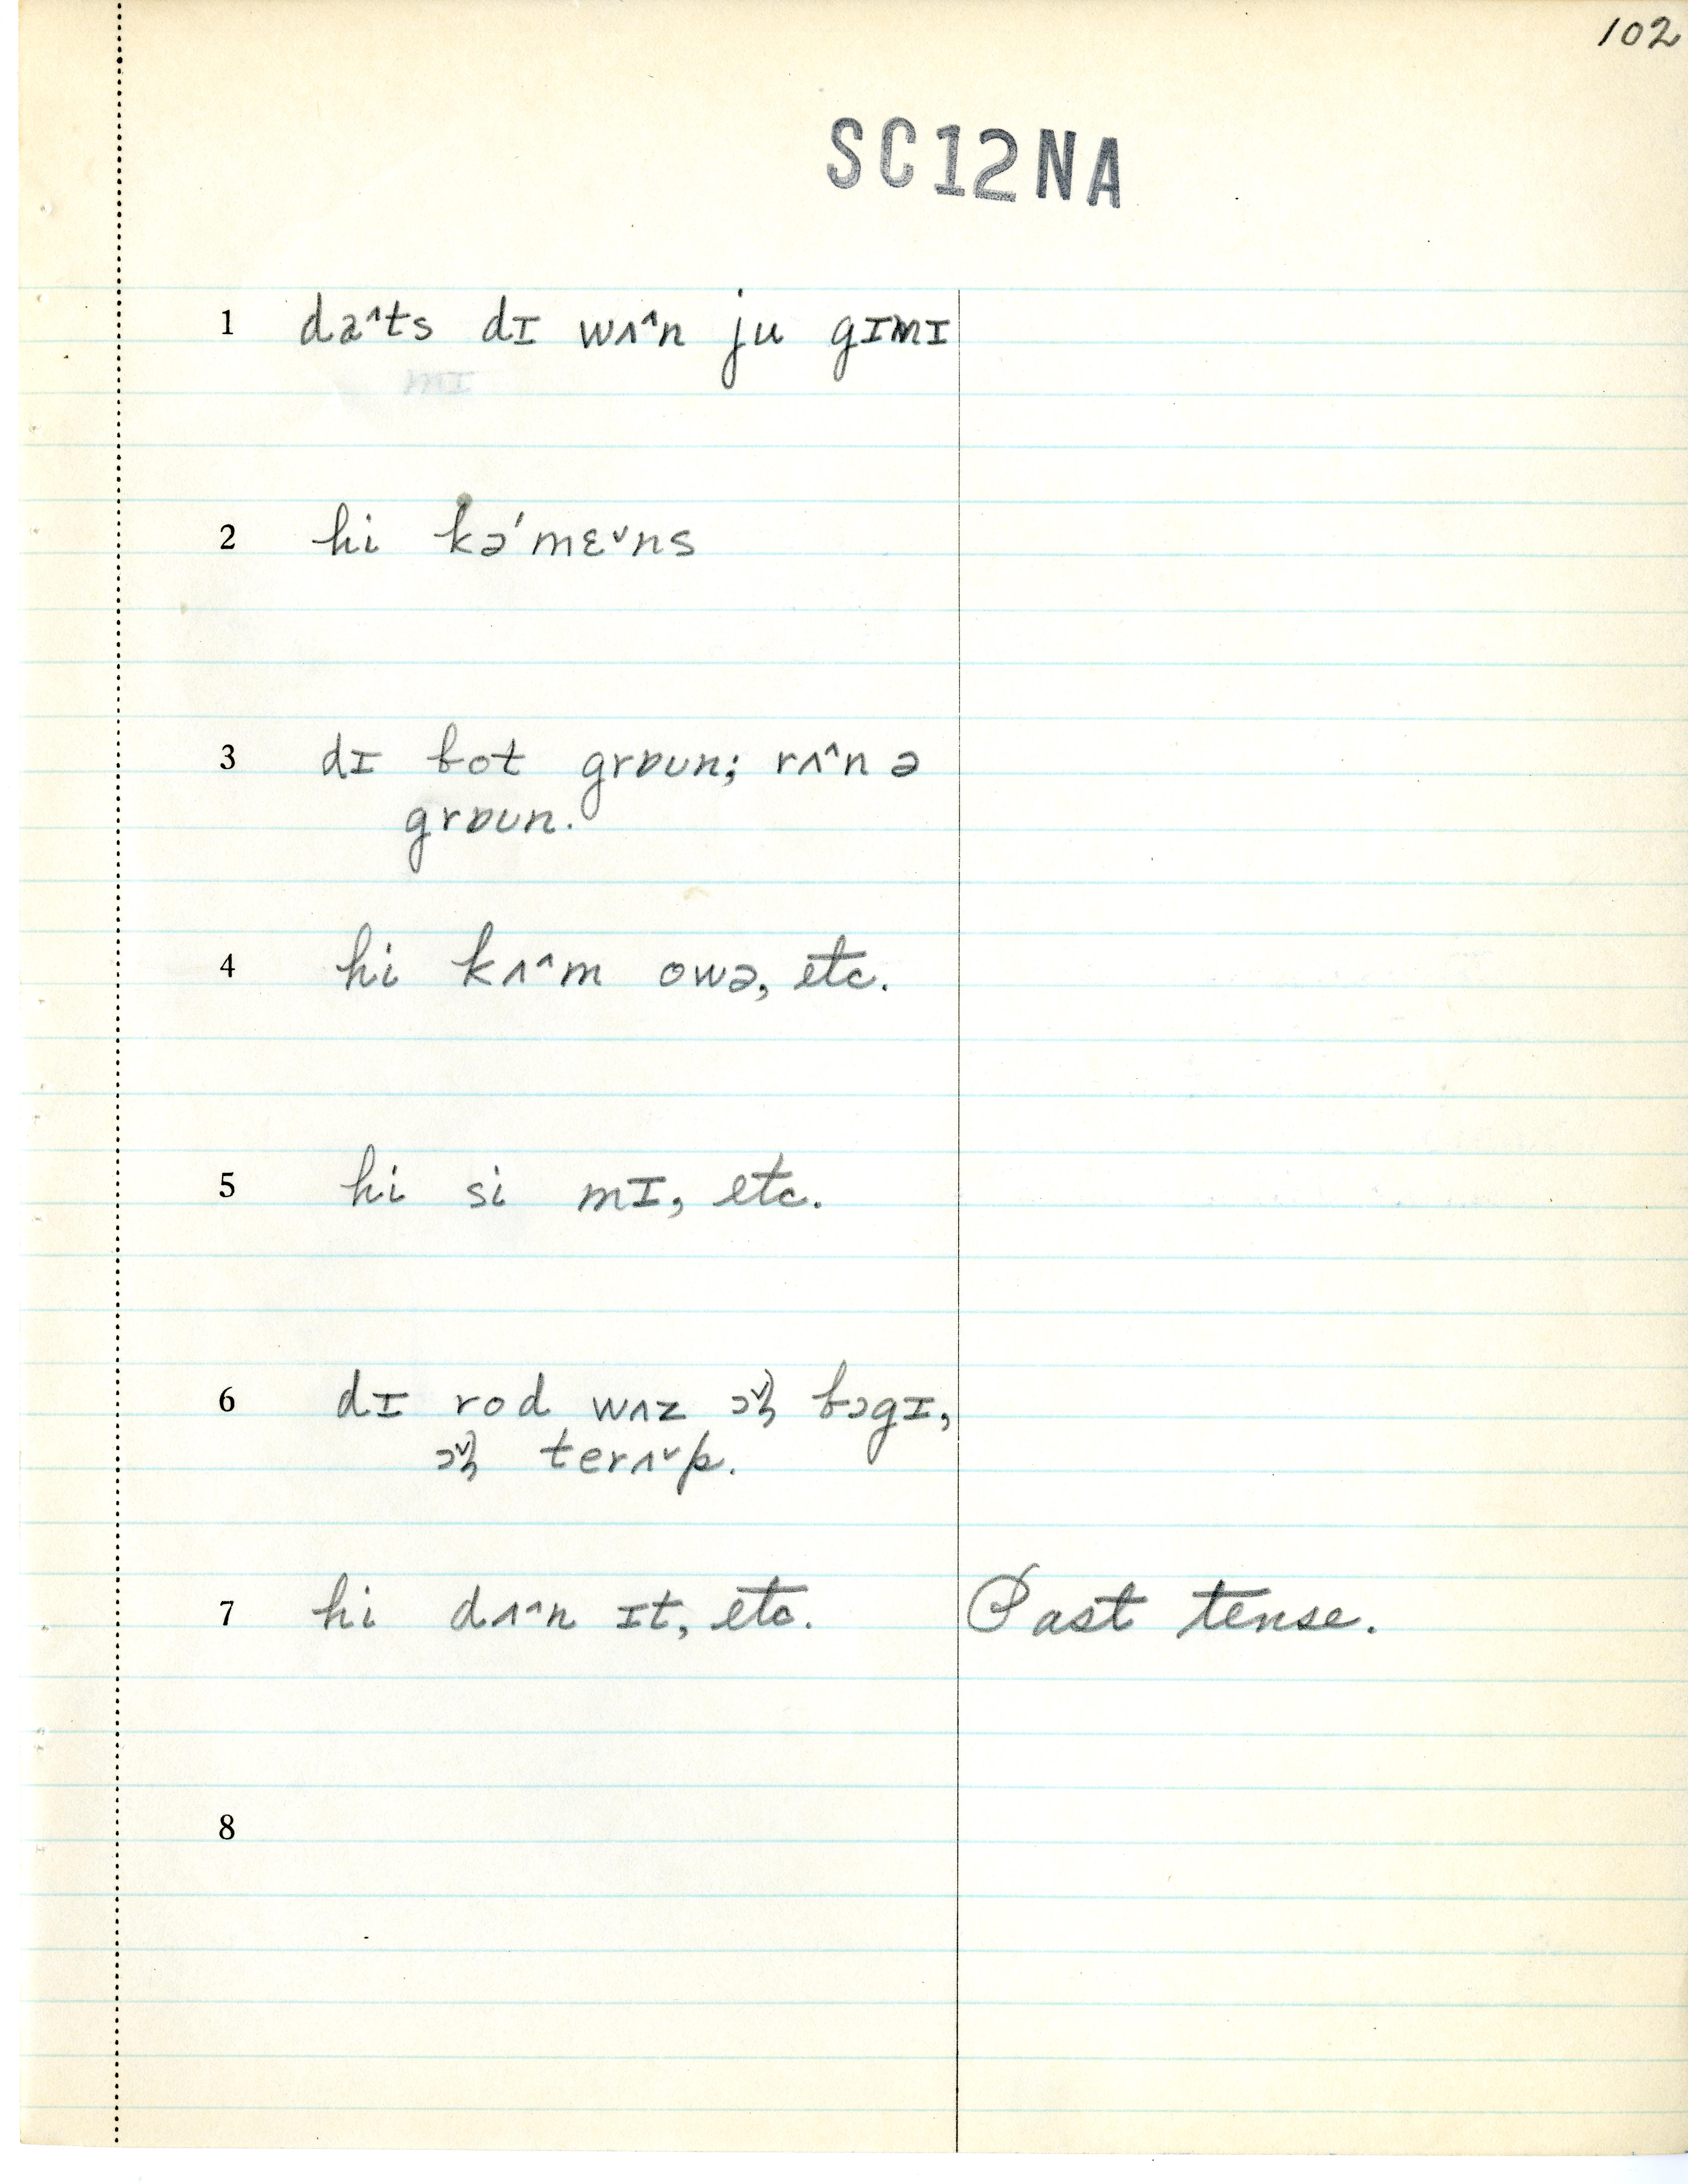 102
SC12NA
1 da^ts dɪ wʌ^n ju gɪmɪ
2 hi kə'mɛ˅ns
3 dɪ bot grɒun; rʌ^n ə
grɒun.
4 hi kʌ^m owə, etc.
5 hi si mɪ, etc.
6 dɪ rod wʌz bɔgɪ,
terʌ˅p.
7 hi dʌ^n ɪt, etc. Past tense.
8